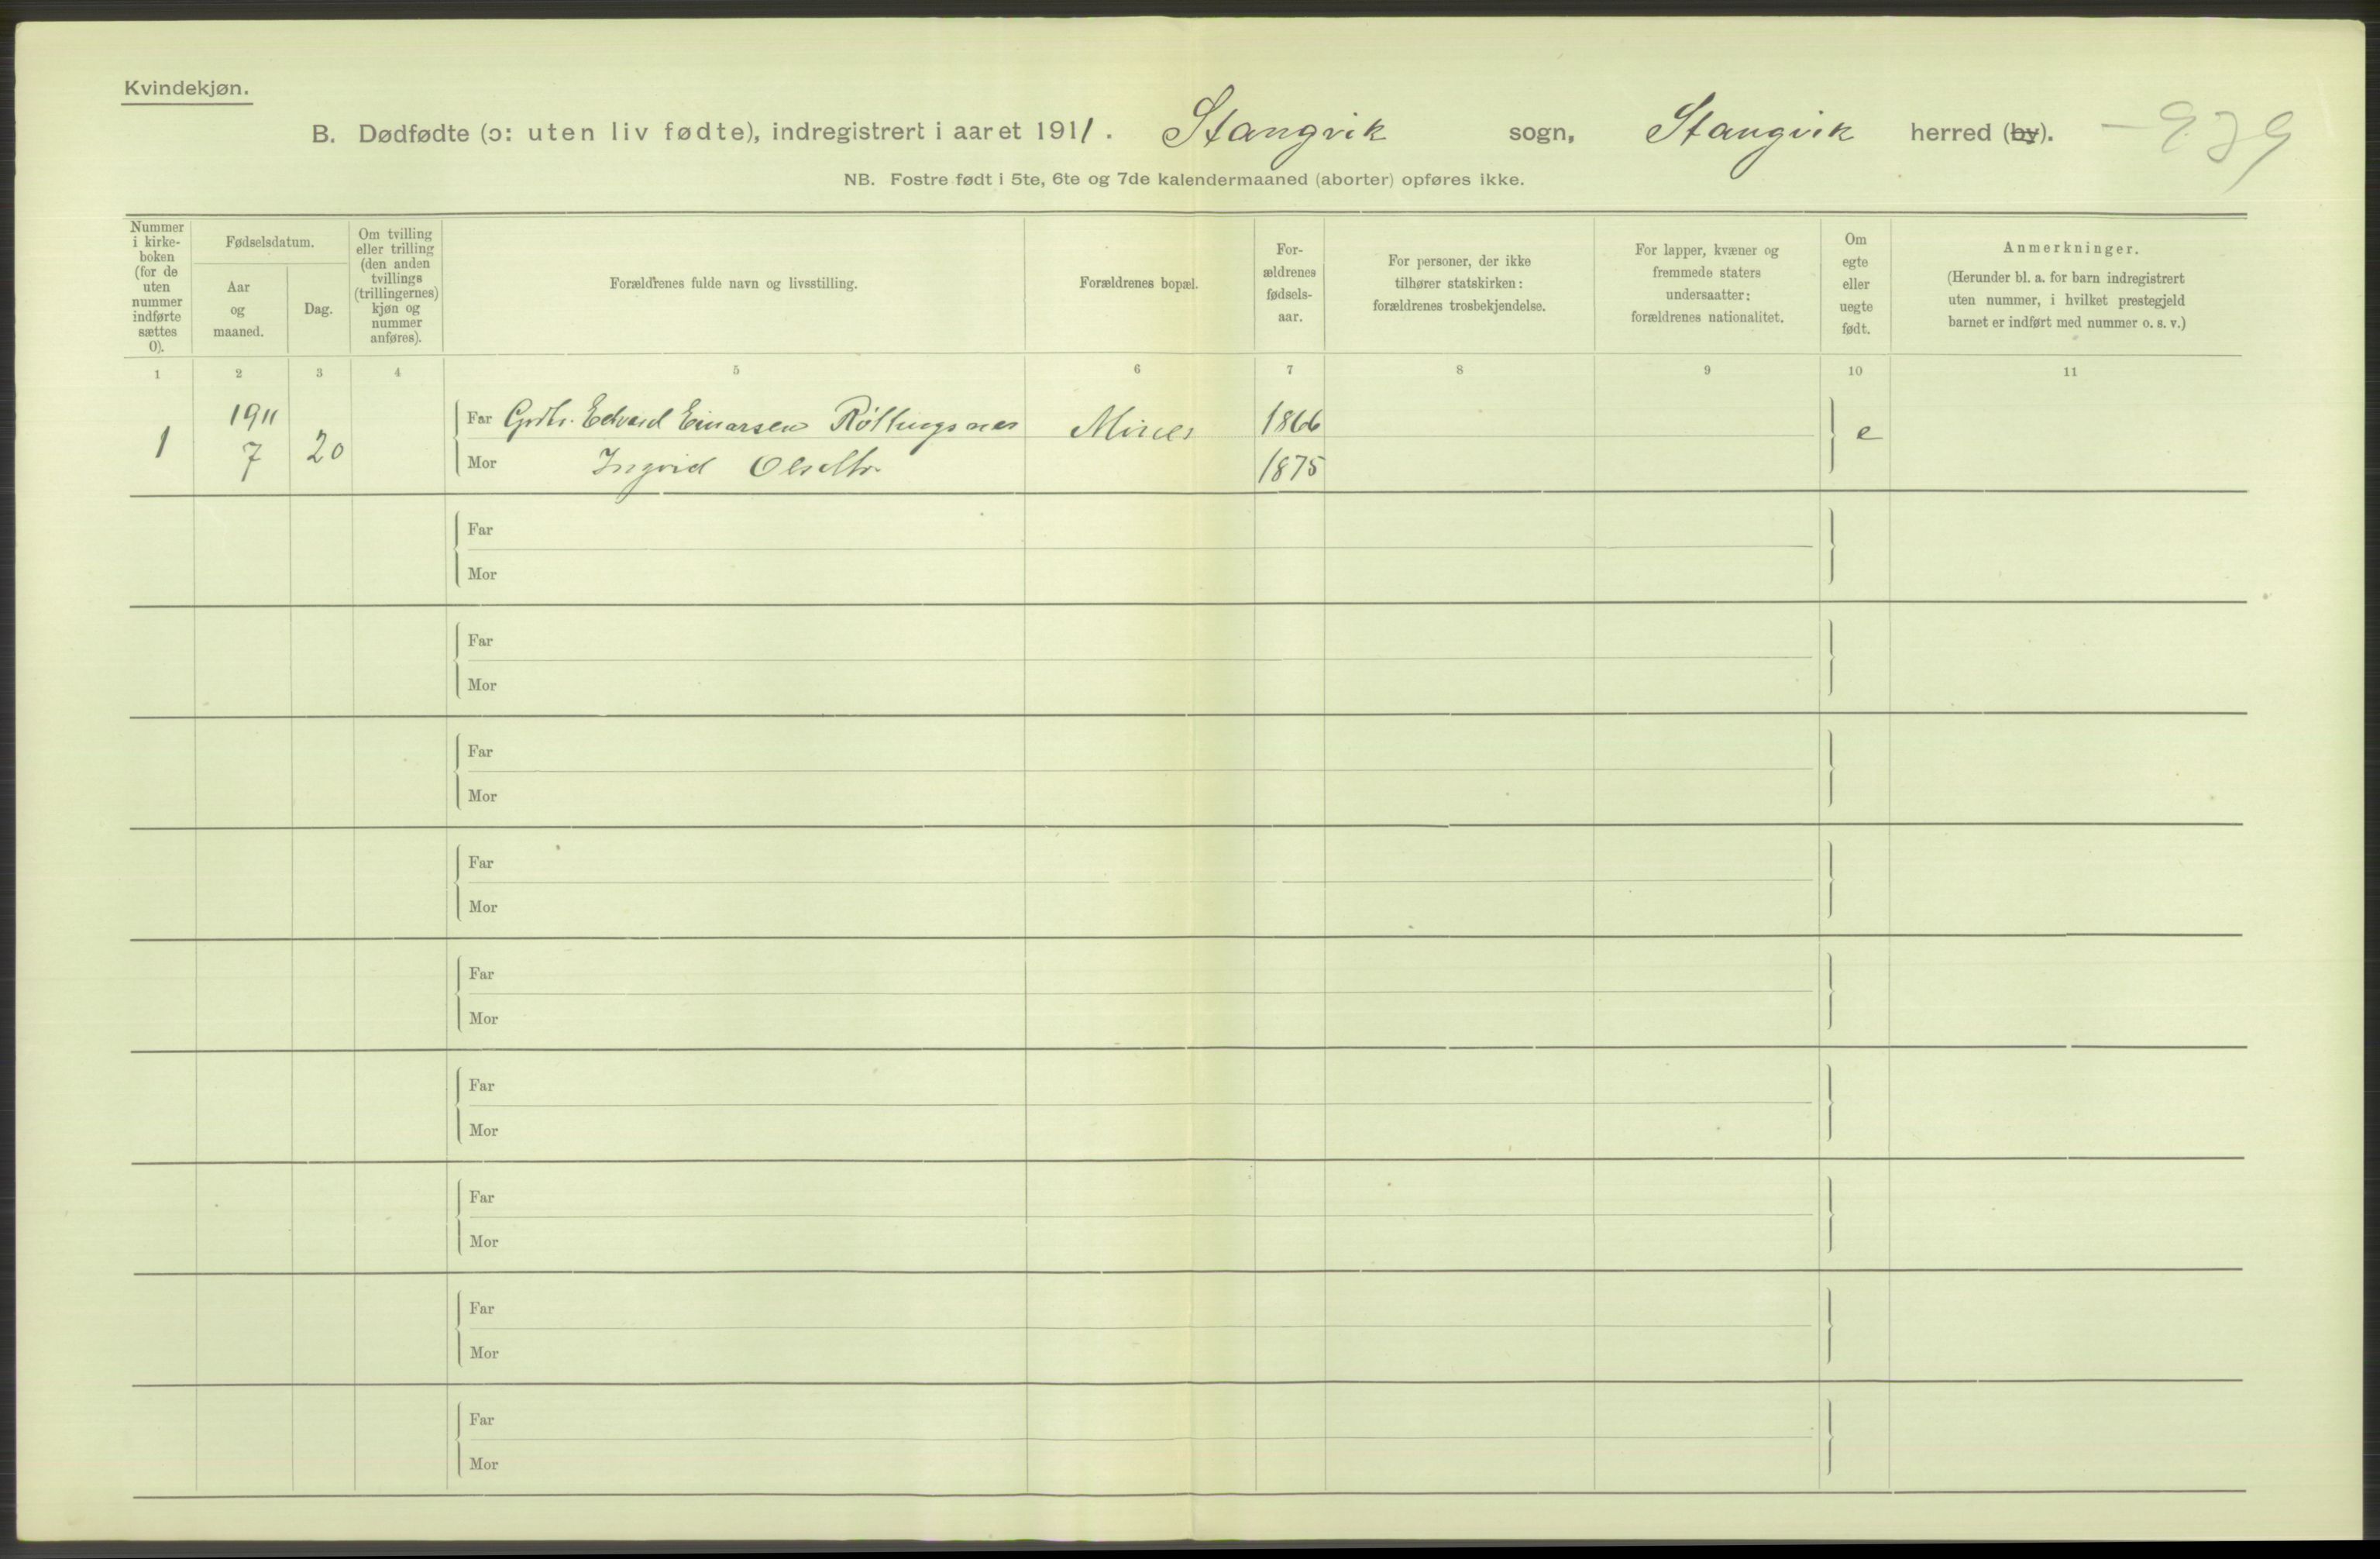 Kvindekjøn.
B. Dødfødte (ɔ: uten liv fødte), indregistrert i aaret 1911. Stangvik sogn, Stangvik herred (by).
NB. Fostre født i 5te, 6te og 7de kalendermaaned (aborter) opføres ikke.
Nummer i kirke-boken (for de uten nummer indførte sættes 0).
Fødselsdatum.
Aar og maaned.
Dag.
Om tvilling eller trilling (den anden tvillings (trillingernes) kjøn og nummer anføres).
Forældrenes fulde navn og livsstilling.
Forældrenes bopæl.
For-ældrenes fødsels-aar.
For personer, der ikke tilhører statskirken: forældrenes trosbekjendelse.
For lapper, kvæner og fremmede staters undersaatter: forældrenes nationalitet.
Om egte eller uegte født.
Anmerkninger.
(Herunder bl. a. for barn indregistrert uten nummer, i hvilket prestegjeld barnet er indført med nummer o. s. v.)
1 2 3 4 5 6 7 8 9 10 11
1911
Far Grdbr. Edvard Einarsen Røttingsnes 1866
1 7 20 e
Mor Ingvid Olsdtr. 1875
Far
Mor
Far
Mor
Far
Mor
Far
Mor
Far
Mor
Far
Mor
Far
Mor
Far
Mor
Far
Mor